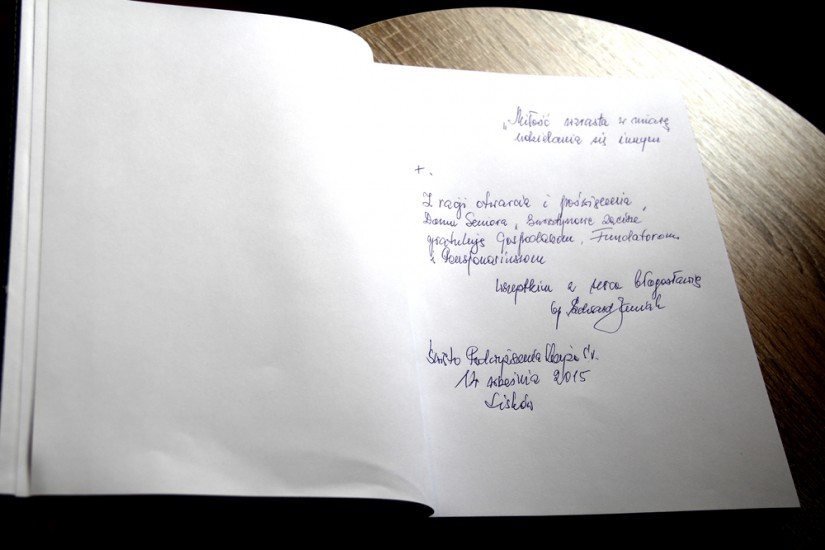 „Miłość wzrasta w miarę
udzielania się innym
+.
Z racji otwarcia i poświęcenia
Domu Seniora „Bursztynowe zacisze”
gratuluję Gospodarzom, Fundatorom
i Pensjonariuszom
Wszystkim z serca błogosławię
bp Edward Janiak
Święto Podwyższenia Krzyża Św.
14 września 2015
Lisków